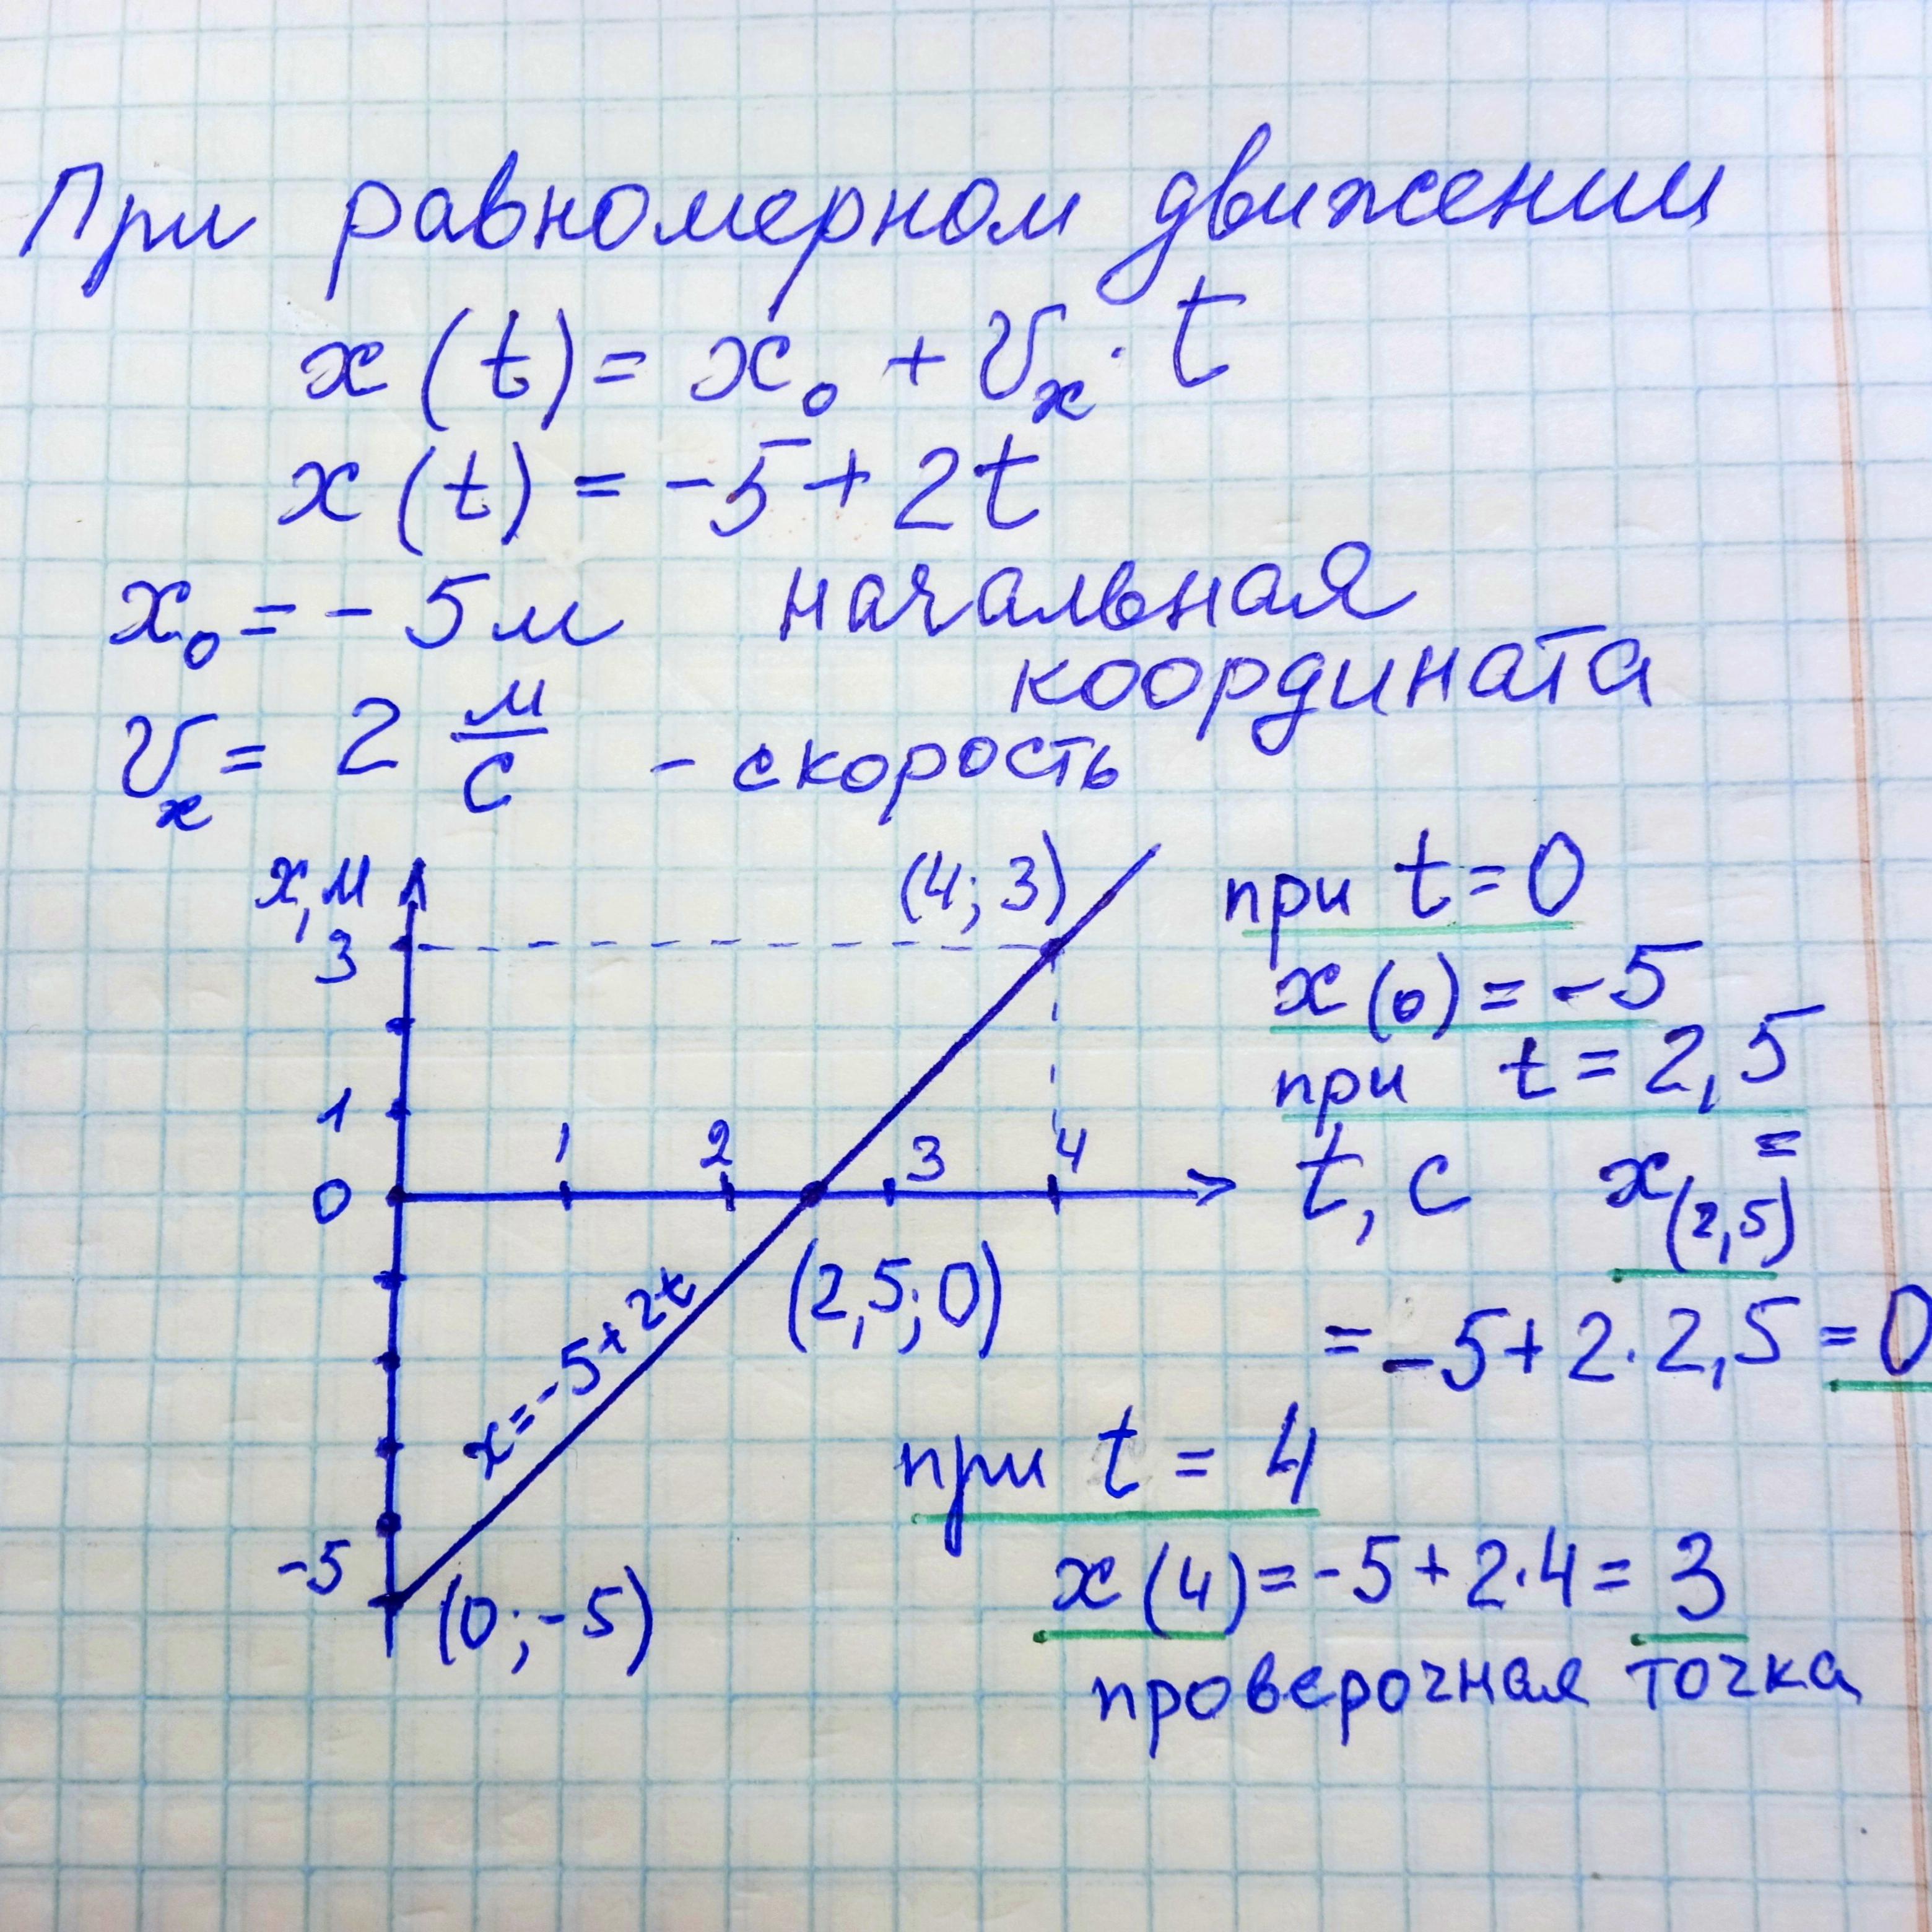 При равномерном движении
x(t) = x₀ + vₓ · t
x(t) = -5 + 2t
x₀ = - 5 м начальная
координата
vₓ = 2 м/с - скорость
x, м
3
1
0
-5
1 2 3 4
t, c
(4; 3)
(2,5; 0)
(0; -5)
x = -5 + 2t
при t = 0
x(0) = -5
при t = 2,5
x(2,5) =
= -5 + 2 · 2,5 = 0
при t = 4
x(4) = -5 + 2·4 = 3
проверочная точка